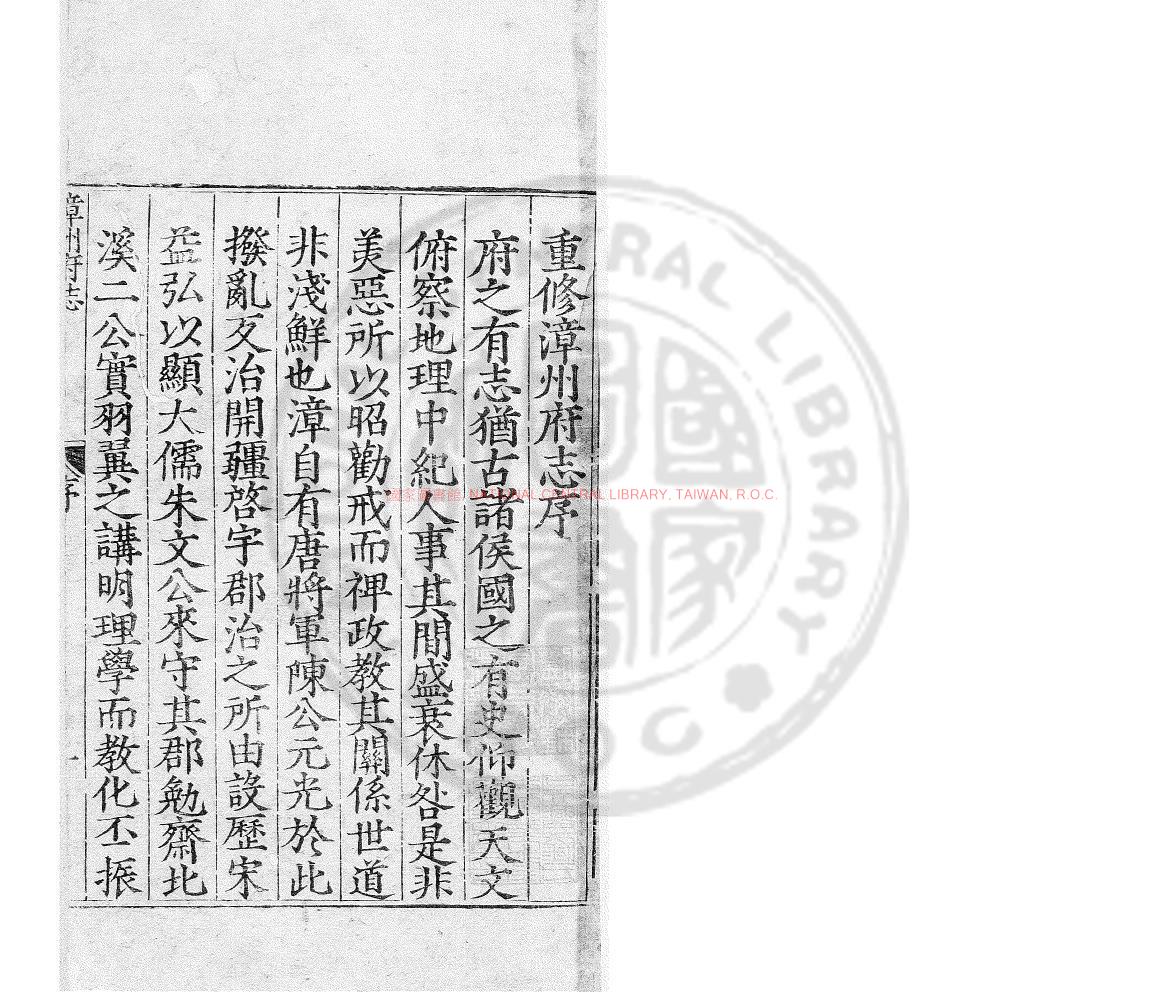 重修漳州府志序
府之有志猶古諸侯國之有史仰觀天文
俯察地理中紀人事其間盛衰休咎是非
美惡所以昭勸戒而裨政教其關係世道
非淺鮮也漳自有唐將軍陳公元光於此
撥亂反治開疆啓宇郡治之所由設歷宋
益弘以顯大儒朱文公來守其郡勉齋北
溪二公實羽翼之講明理學而教化丕振
漳州府志
序
一
國家圖書館, NATIONAL CENTRAL LIBRARY, TAIWAN, R.O.C.